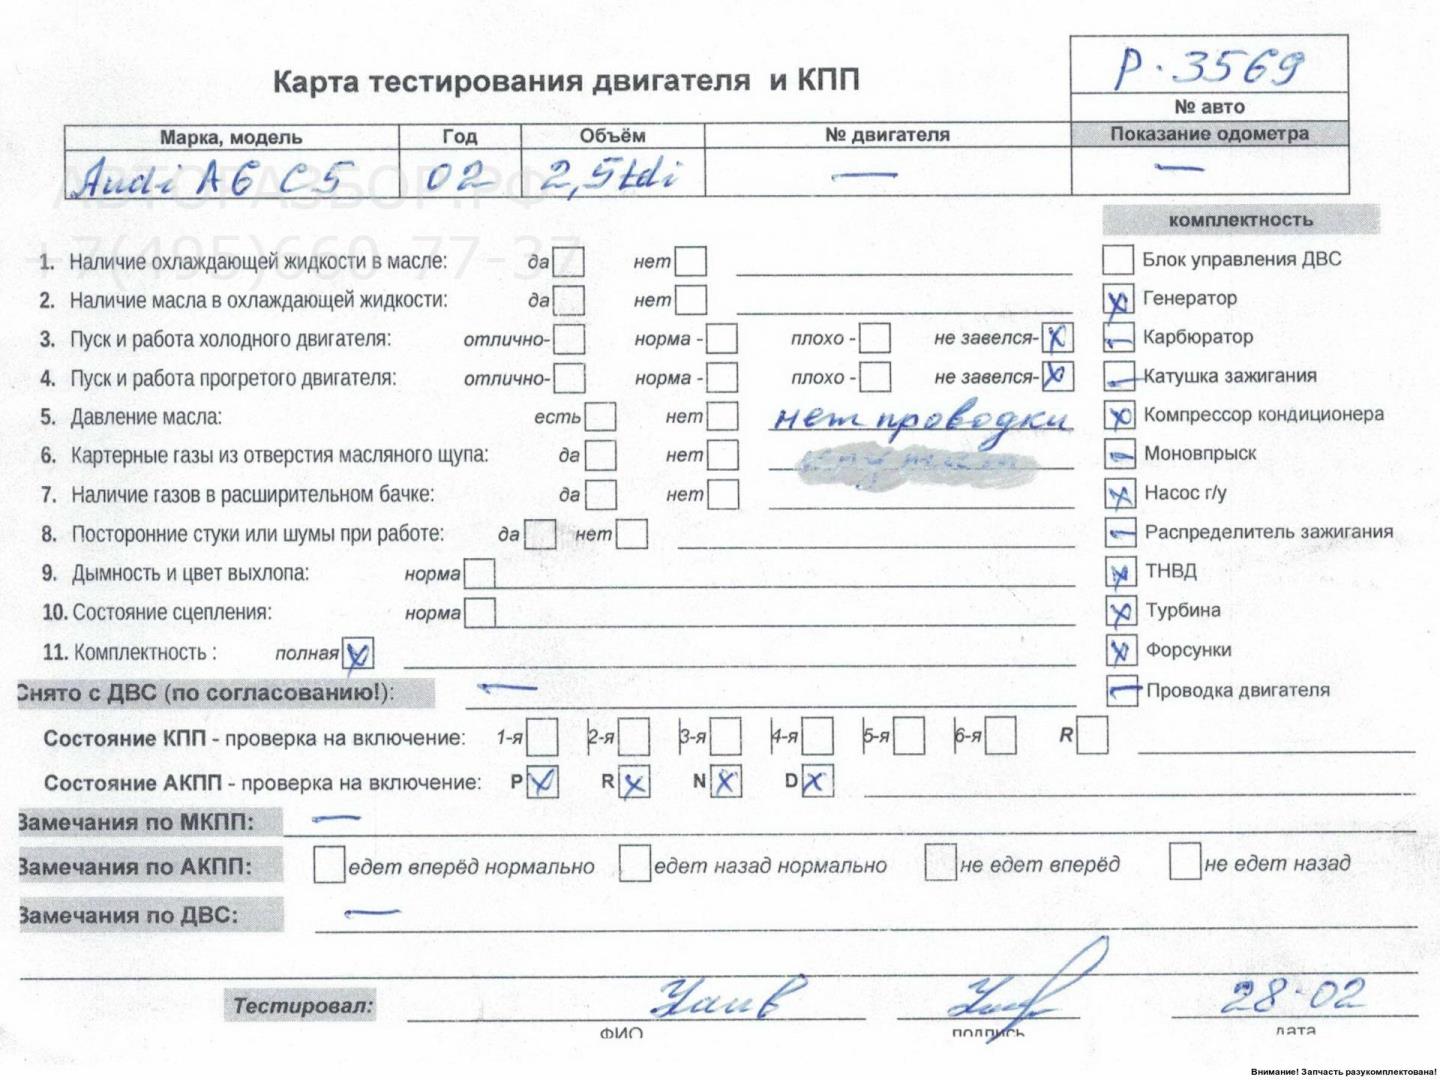 Карта тестирования двигателя и КПП
Р-3569
№ авто
Марка, модель Год Объём № двигателя Показание одометра
Audi A6 C5 02 2,5tdi — —
АВТОРАЗБОР.РФ
+7(495)660-77-37
комплектность
1. Наличие охлаждающей жидкости в масле: да нет
Блок управления ДВС
2. Наличие масла в охлаждающей жидкости: да нет
Генератор
3. Пуск и работа холодного двигателя: отлично- норма - плохо - не завелся-
Карбюратор
4. Пуск и работа прогретого двигателя: отлично- норма - плохо - не завелся-
Катушка зажигания
5. Давление масла: есть нет нет проводки
Компрессор кондиционера
6. Картерные газы из отверстия масляного щупа: да нет
Моновпрыск
7. Наличие газов в расширительном бачке: да нет
Насос г/у
8. Посторонние стуки или шумы при работе: да нет
Распределитель зажигания
9. Дымность и цвет выхлопа: норма
ТНВД
10. Состояние сцепления: норма
Турбина
11. Комплектность : полная
Форсунки
Снято с ДВС (по согласованию!): —
Проводка двигателя
Состояние КПП - проверка на включение: 1-я 2-я 3-я 4-я 5-я 6-я R
Состояние АКПП - проверка на включение: P R N D
Замечания по МКПП: —
Замечания по АКПП: едет вперёд нормально едет назад нормально не едет вперёд не едет назад
Замечания по ДВС: —
Тестировал: 28-02
ФИО подпись дата
Внимание! Запчасть разукомплектована!